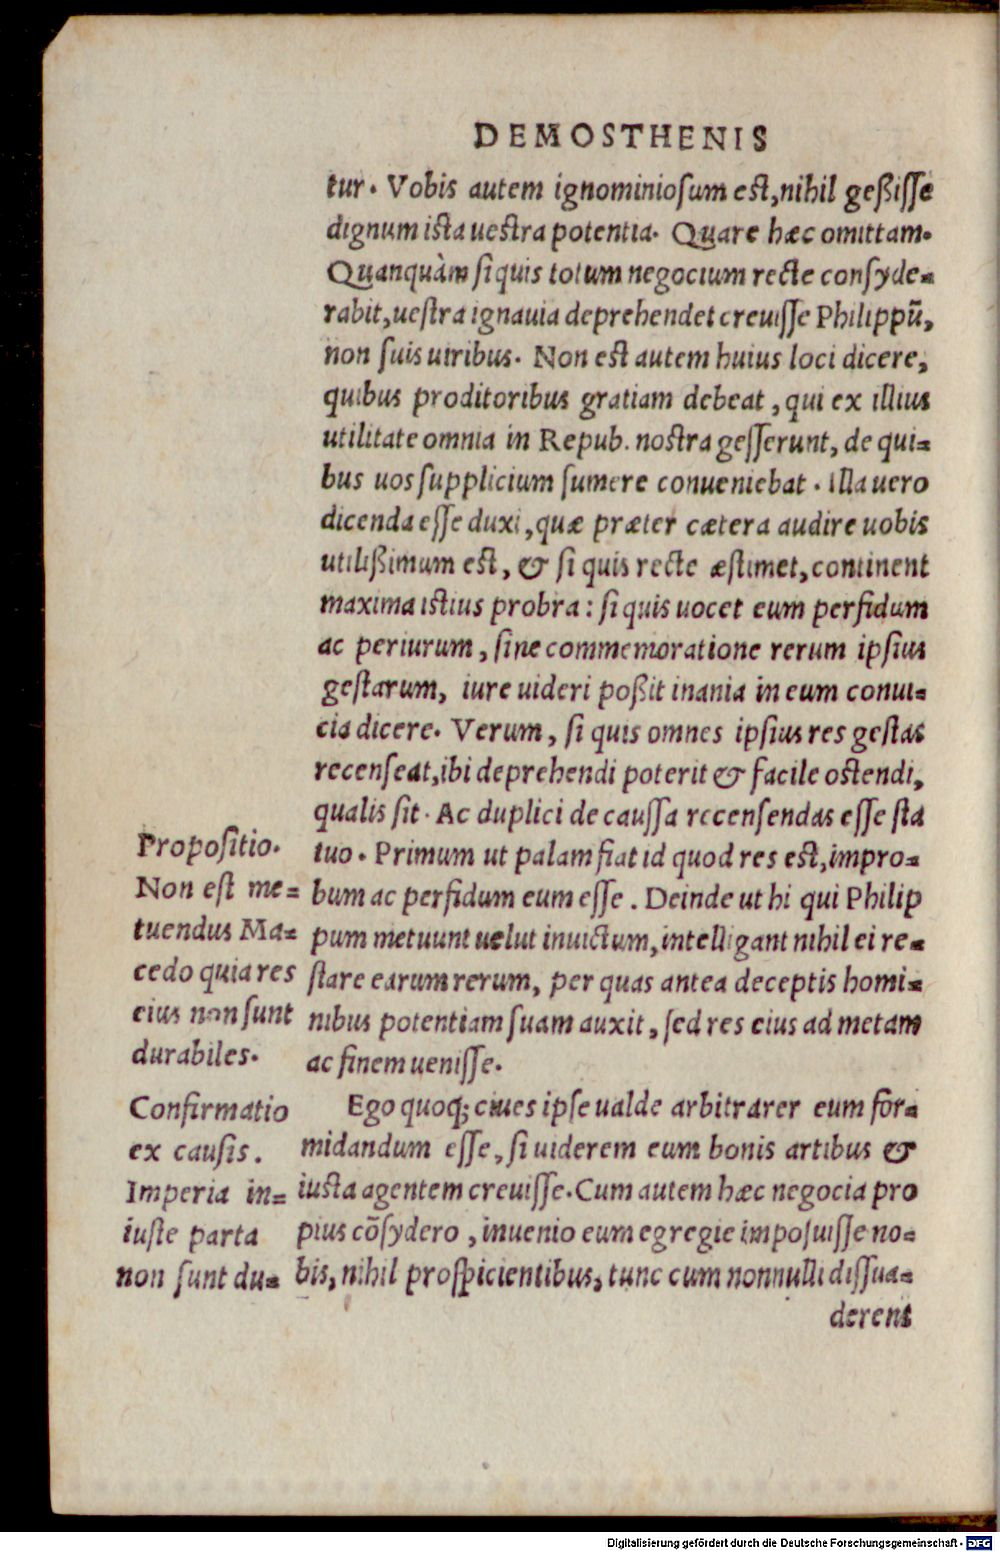 DEMOSTHENIS
tur. Vobis autem ignominiosum est, nihil geßisse
dignum ista uestra potentia. Quare hæc omittam.
Quanquàm si quis totum negocium recte consyde=
rabit, uestra ignauia deprehendet creuisse Philippū,
non suis uiribus. Non est autem huius loci dicere,
quibus proditoribus gratiam debeat, qui ex illius
utilitate omnia in Repub. nostra gesserunt, de qui=
bus uos supplicium sumere conueniebat. illa uero
dicenda esse duxi, quæ præter cætera audire uobis
utilißimum est, & si quis recte æstimet, continent
maxima istius probra: si quis uocet eum perfidum
ac periurum, sine commemoratione rerum ipsius
gestarum, iure uideri poßit inania in eum conui=
cia dicere. Verum, si quis omnes ipsius res gestas
recenseat, ibi deprehendi poterit & facile ostendi,
qualis sit. Ac duplici de caussa recensendas esse sta
tuo. Primum ut palam fiat id quod res est, impro=
bum ac perfidum eum esse. Deinde ut hi qui Philip
pum metuunt uelut inuictum, intelligant nihil ei re=
stare earum rerum, per quas antea deceptis homi=
nibus potentiam suam auxit, sed res eius ad metam
ac finem uenisse.
Ego quoq; ciues ipse ualde arbitrarer eum for=
midandum esse, si uiderem eum bonis artibus &
iusta agentem creuisse. Cum autem hæc negocia pro
pius cōsydero, inuenio eum egregie imposuisse no=
bis, nihil prospicientibus, tunc cum nonnulli dissua=
derent
Propositio.
Non est me=
tuendus Ma=
cedo quia res
eius non sunt
durabiles.
Confirmatio
ex causis.
Imperia in=
iuste parta
non sunt du=
Digitalisierung gefördert durch die Deutsche Forschungsgemeinschaft - DFG